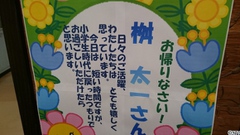 お帰りなさい!
桝 太一さん
日々のご活躍、
わたしたちは、とても嬉しく
思っています。
今日は、短い時間ですが、
小学生時代に戻ったつもりで
お過ごしいただけたら
と思います。